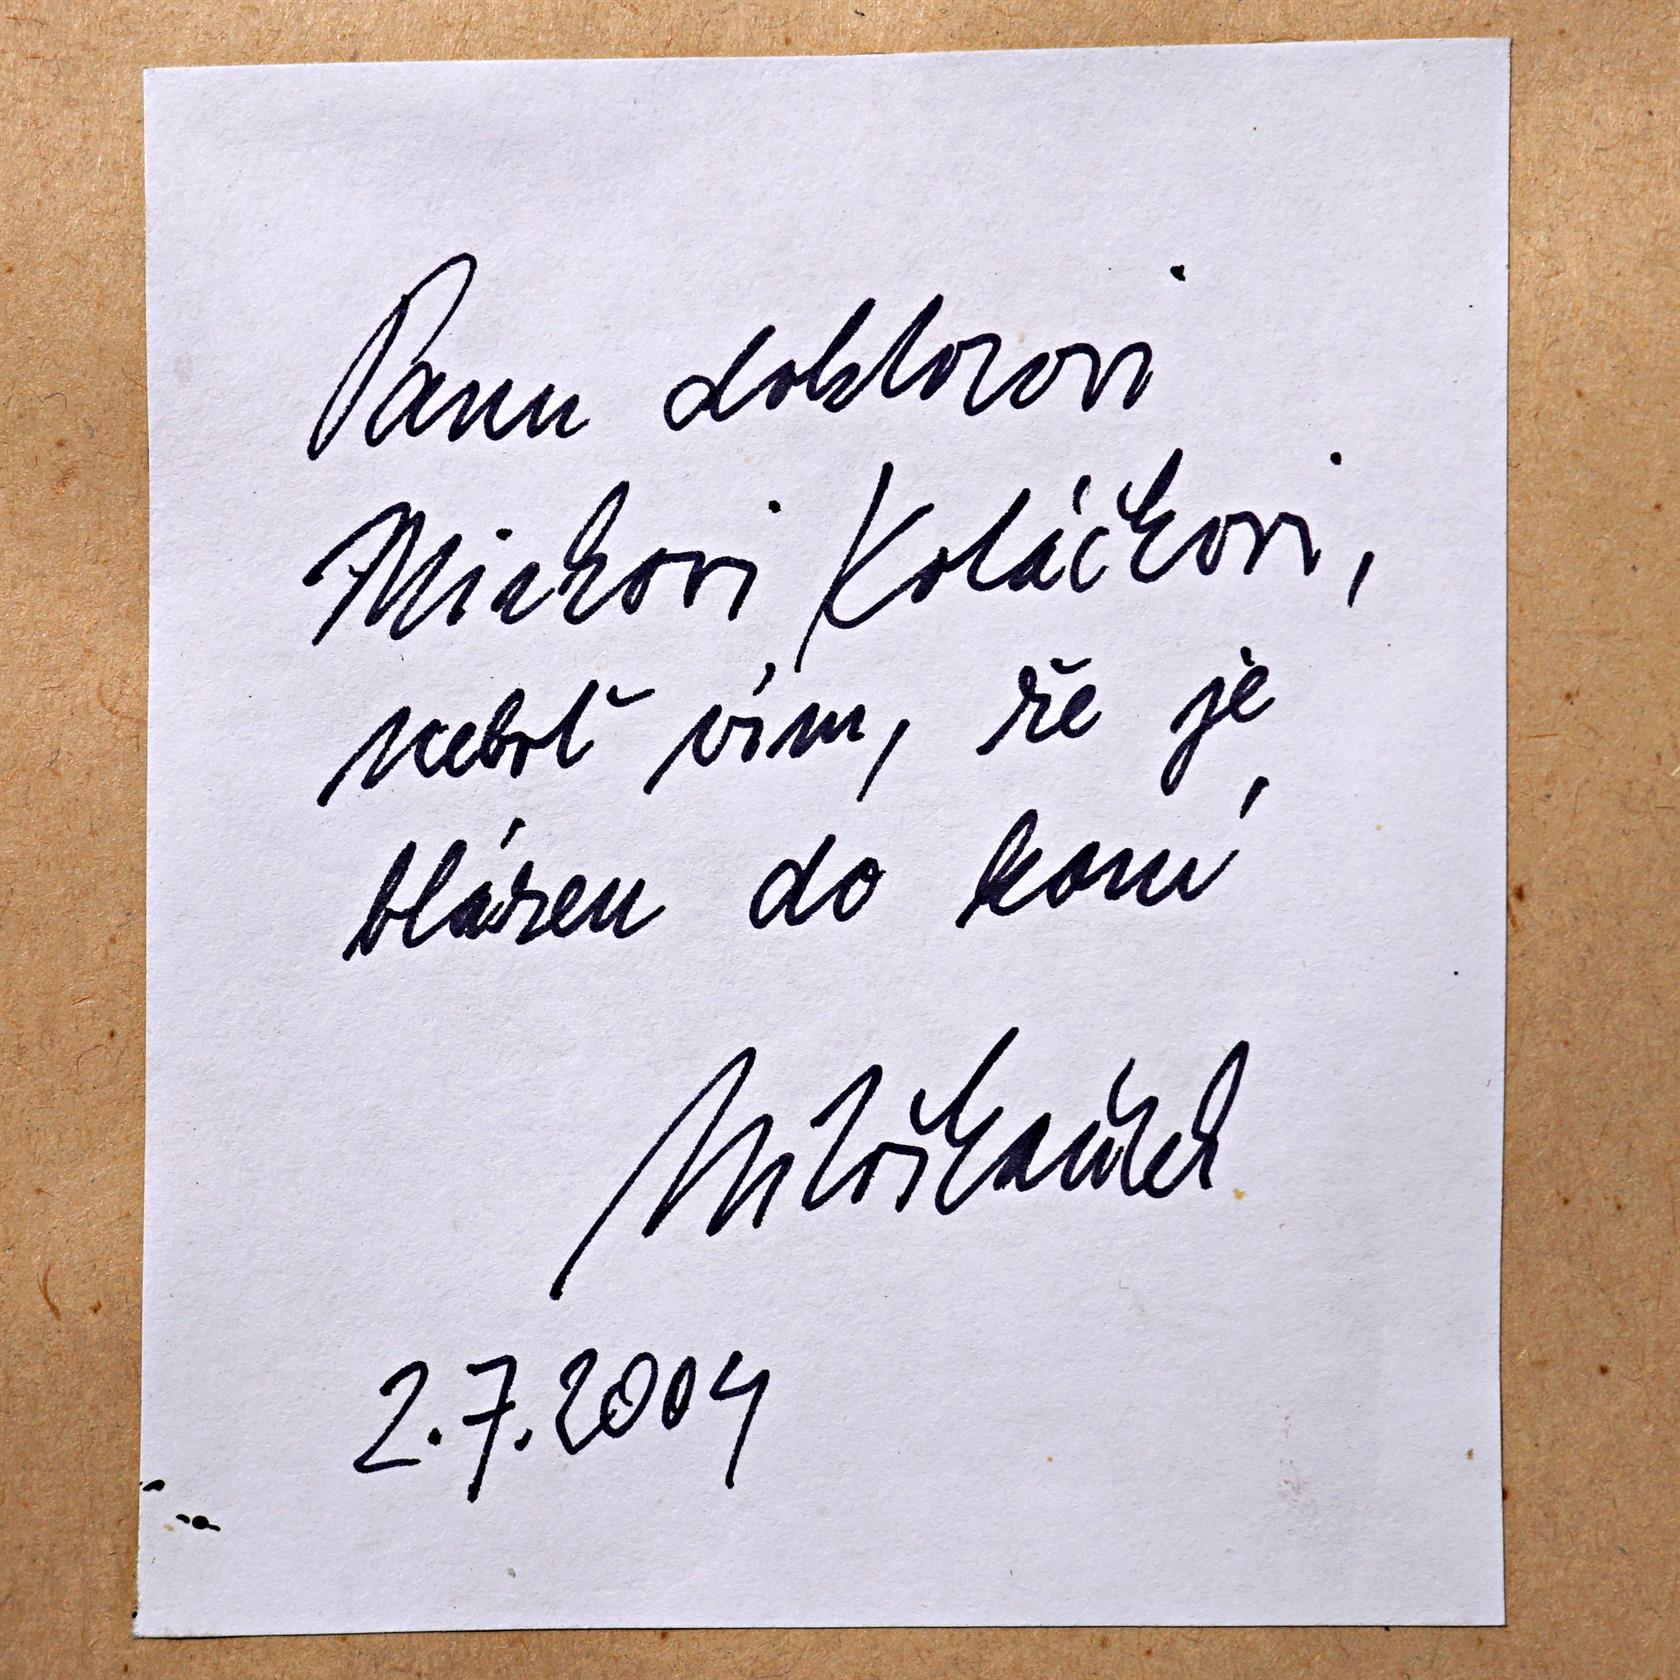 Panu doktorovi
Mirkovi Koláčkovi,
neboť vím, že je
blázen do koní
2.7.2004